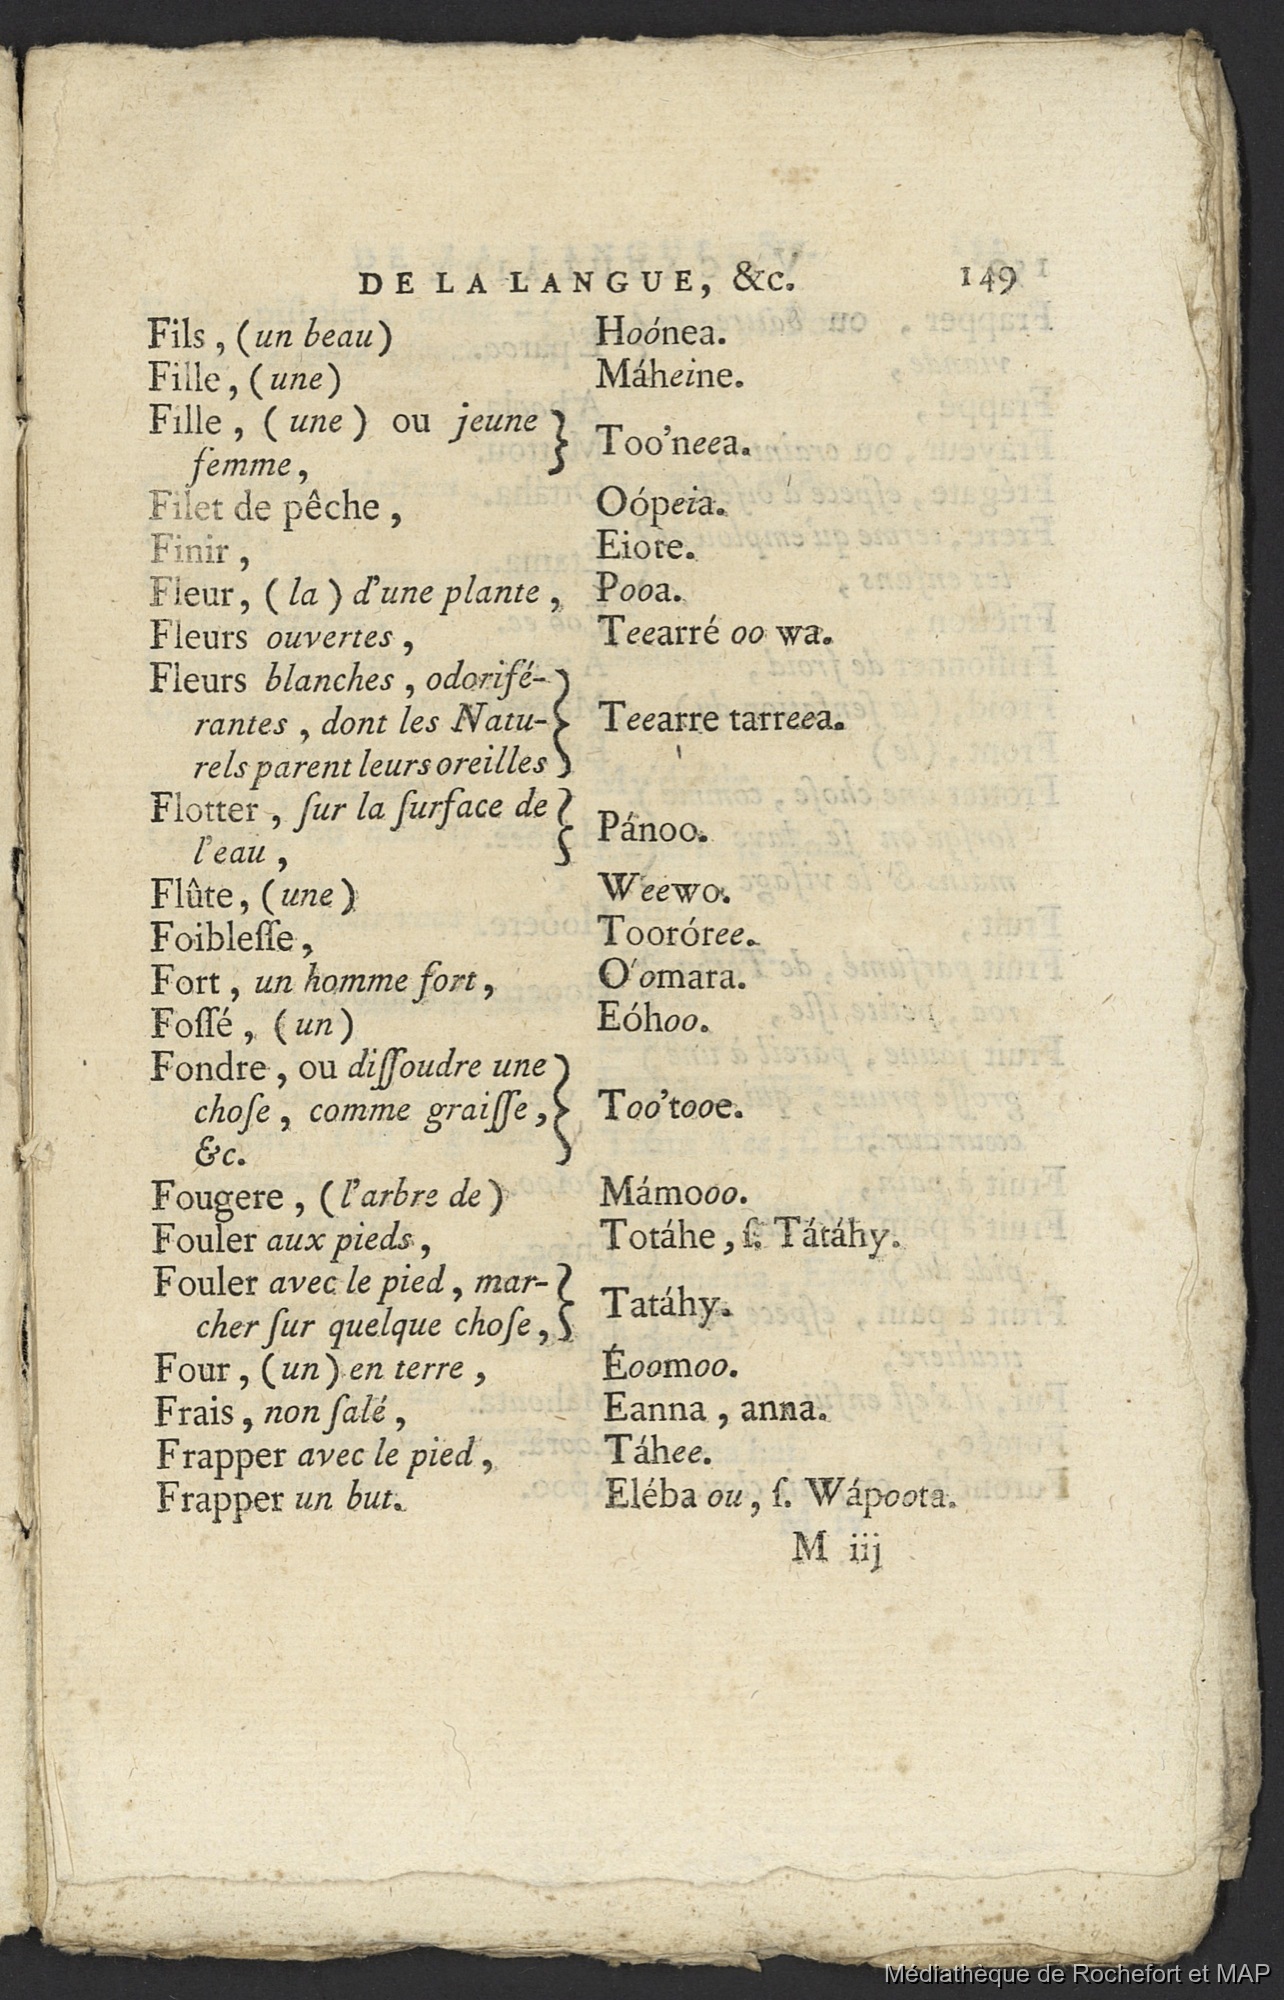 DE LA LANGUE, &c. 149
Fils, (un beau) Hoónea.
Fille, (une) Máheine.
Fille, (une) ou jeune
femme, Too'neea.
Filet de pêche, Oópeia.
Finir, Eiote.
Fleur, (la) d'une plante, Pooa.
Fleurs ouvertes, Teearré oo wa.
Fleurs blanches, odorifé-
rantes, dont les Natu- Teearre tarreea.
rels parent leurs oreilles
Flotter, ſur la ſurface de
l'eau, Pánoo.
Flûte, (une) Weewo.
Foibleſſe, Tooróree.
Fort, un homme fort, O'omara.
Foſſé, (un) Eóhoo.
Fondre, ou diſſoudre une
choſe, comme graiſſe, Too'tooe.
&c.
Fougere, (l'arbre de) Mámooo.
Fouler aux pieds, Totáhe, ſ. Tátáhy.
Fouler avec le pied, mar-
cher ſur quelque choſe, Tatáhy.
Four, (un) en terre, Éoomoo.
Frais, non ſalé, Eanna, anna.
Frapper avec le pied, Táhee.
Frapper un but. Eléba ou, ſ. Wápoota.
M iij
Médiathèque de Rochefort et MAP